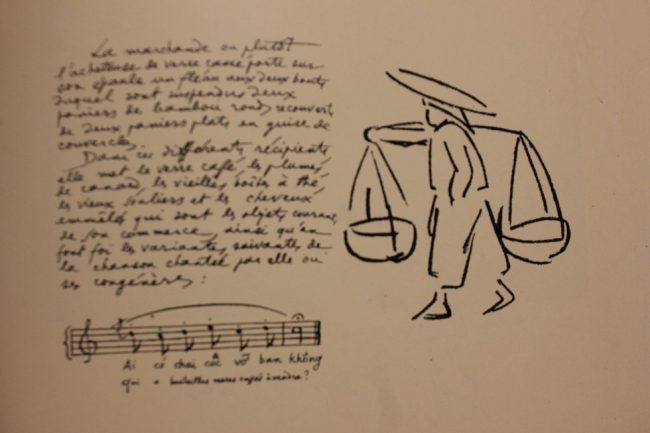 La marchande ou plutôt
l'acheteuse de verre cassé porte sur
son épaule un fléau aux deux bouts
duquel sont suspendus deux
paniers de bambou ronds recouverts
de deux paniers plats en guise de
couvercles.
Dans ces différents récipients
elle met le verre cassé, les plumes
de canard, les vieilles boîtes à thé,
les vieux souliers et les cheveux
emmêlés qui sont les objets courants
de son commerce, ainsi qu'en
font foi les variantes suivantes de
la chanson chantée par elle ou
ses congénères :
Ai có chai cốc vỡ bán không
qui a bouteilles verres cassés à vendre?